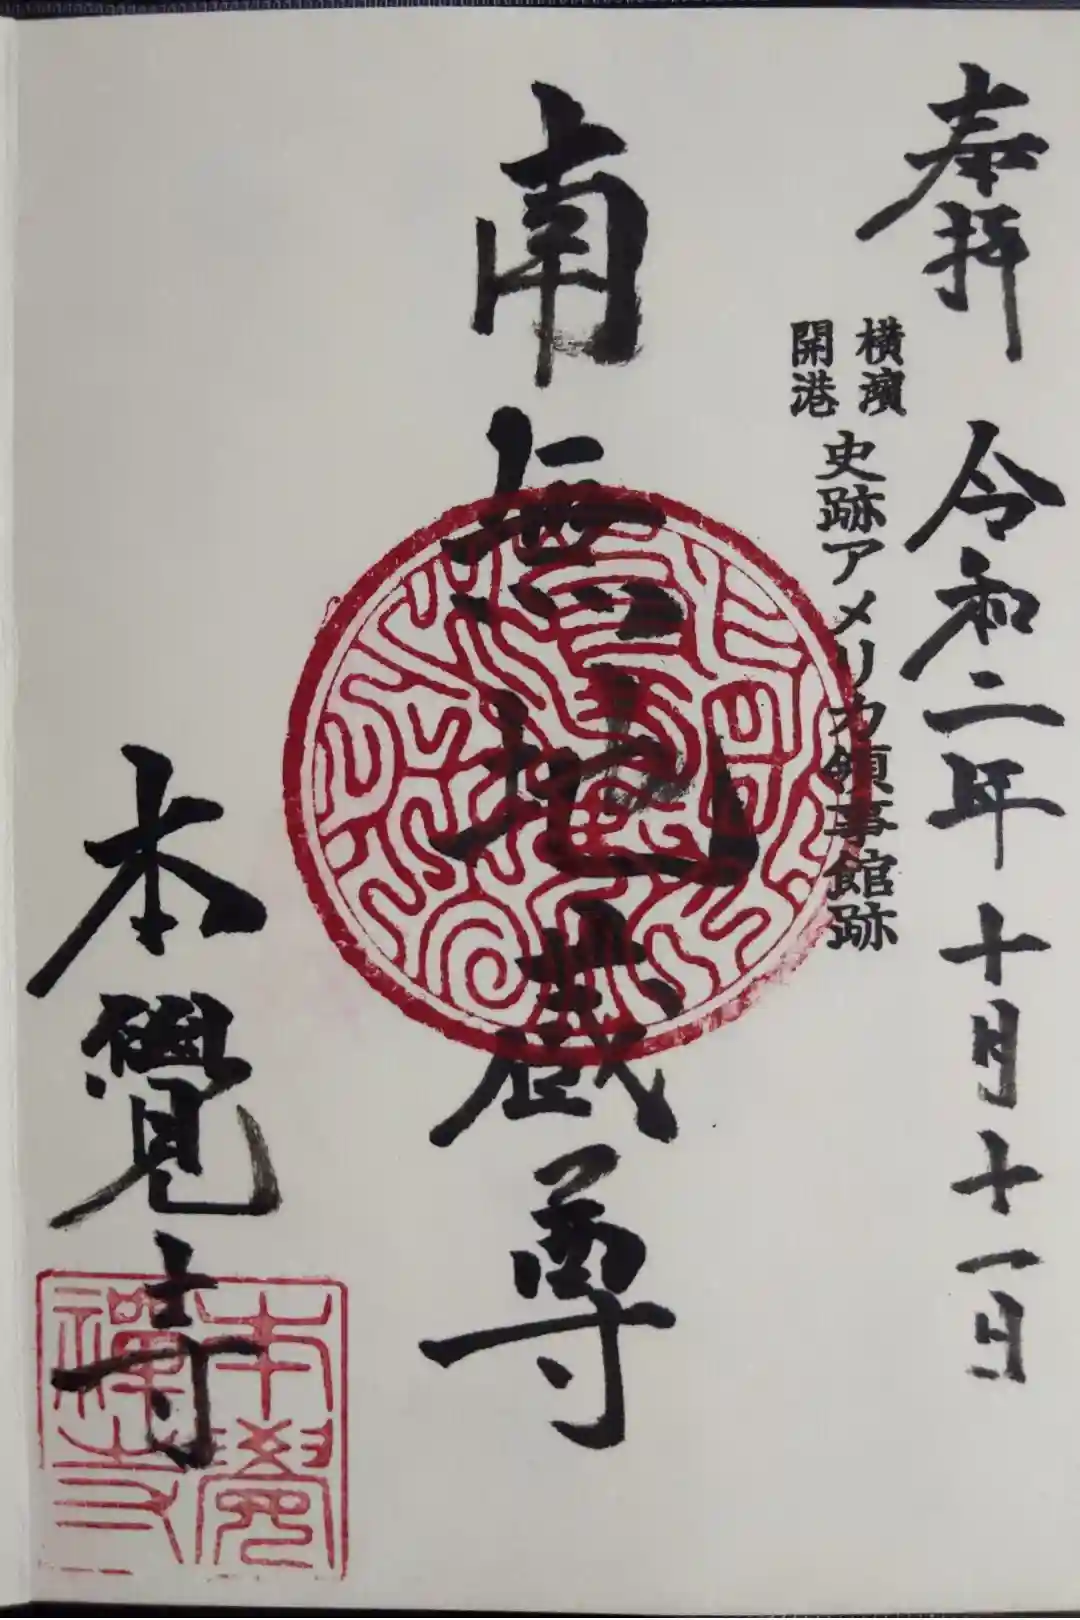 奉拝 令和二年十月十一日
横濱
開港
史跡アメリカ領事館跡
南無地蔵尊
本覺寺
本覺
禅寺